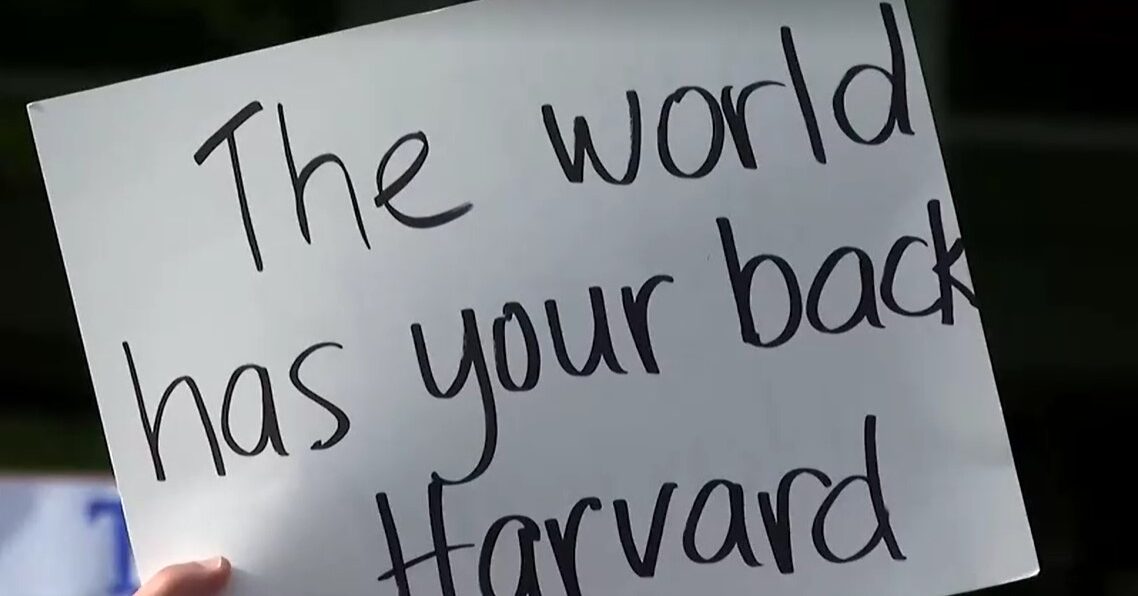 The world
has your back
Harvard
T